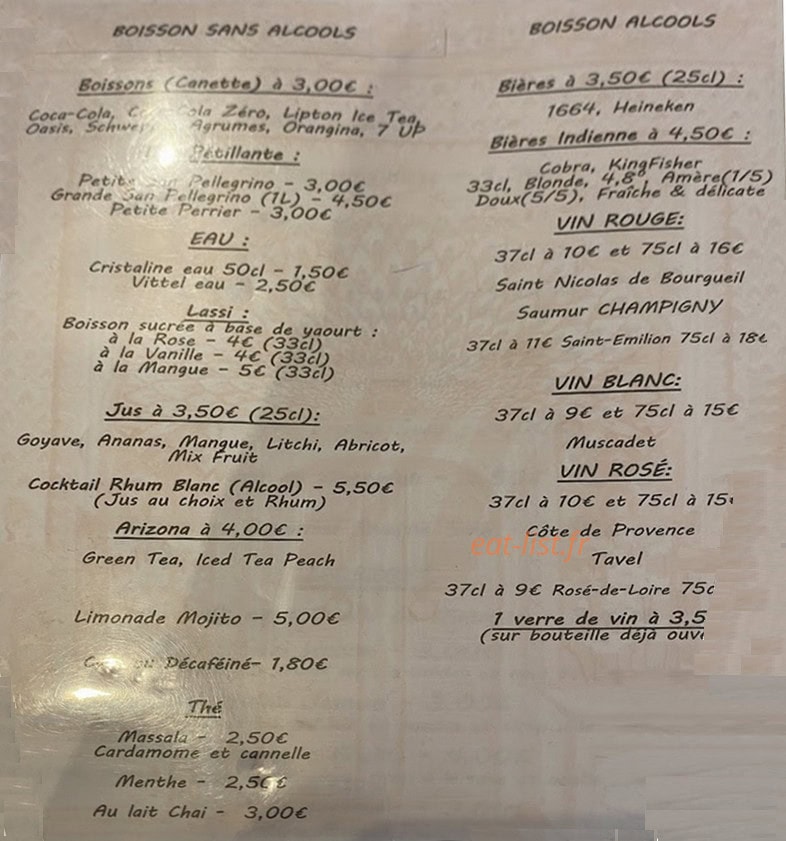 BOISSON SANS ALCOOLS
Boissons (Canette) à 3,00€ :
Coca-Cola, Zéro, Lipton Ice Tea,
Oasis, Agrumes, Orangina, 7 UP
Pétillante :
Petite Pellegrino - 3,00€
Grande San Pellegrino (1L) - 4,50€
Petite Perrier - 3,00€
EAU :
Cristaline eau 50cl - 1,50€
Vittel eau - 2,50€
Lassi :
Boisson sucrée à base de yaourt :
à la Rose - 4€ (33cl)
à la Vanille - 4€ (33cl)
à la Mangue - 5€ (33cl)
Jus à 3,50€ (25cl):
Goyave, Ananas, Mangue, Litchi, Abricot,
Mix Fruit
Cocktail Rhum Blanc (Alcool) - 5,50€
(Jus au choix et Rhum)
Arizona à 4,00€ :
Green Tea, Iced Tea Peach
Limonade Mojito - 5,00€
Décaféiné- 1,80€
Thé
Massala - 2,50€
Cardamome et cannelle
Menthe - 2,50€
Au lait Chai - 3,00€
BOISSON ALCOOLS
Bières à 3,50€ (25cl) :
1664, Heineken
Bières Indienne à 4,50€ :
Cobra, KingFisher
33cl, Blonde, 4,8°, Amère(1/5)
Doux(5/5), Fraîche & délicate
VIN ROUGE:
37cl à 10€ et 75cl à 16€
Saint Nicolas de Bourgueil
Saumur CHAMPIGNY
37cl à 11€ Saint-Emilion 75cl à 18€
VIN BLANC:
37cl à 9€ et 75cl à 15€
Muscadet
VIN ROSÉ:
37cl à 10€ et 75cl à 15
Côte de Provence
eat-list.fr
Tavel
37cl à 9€ Rosé-de-Loire 75c
1 verre de vin à 3,5
(sur bouteille déjà ouv